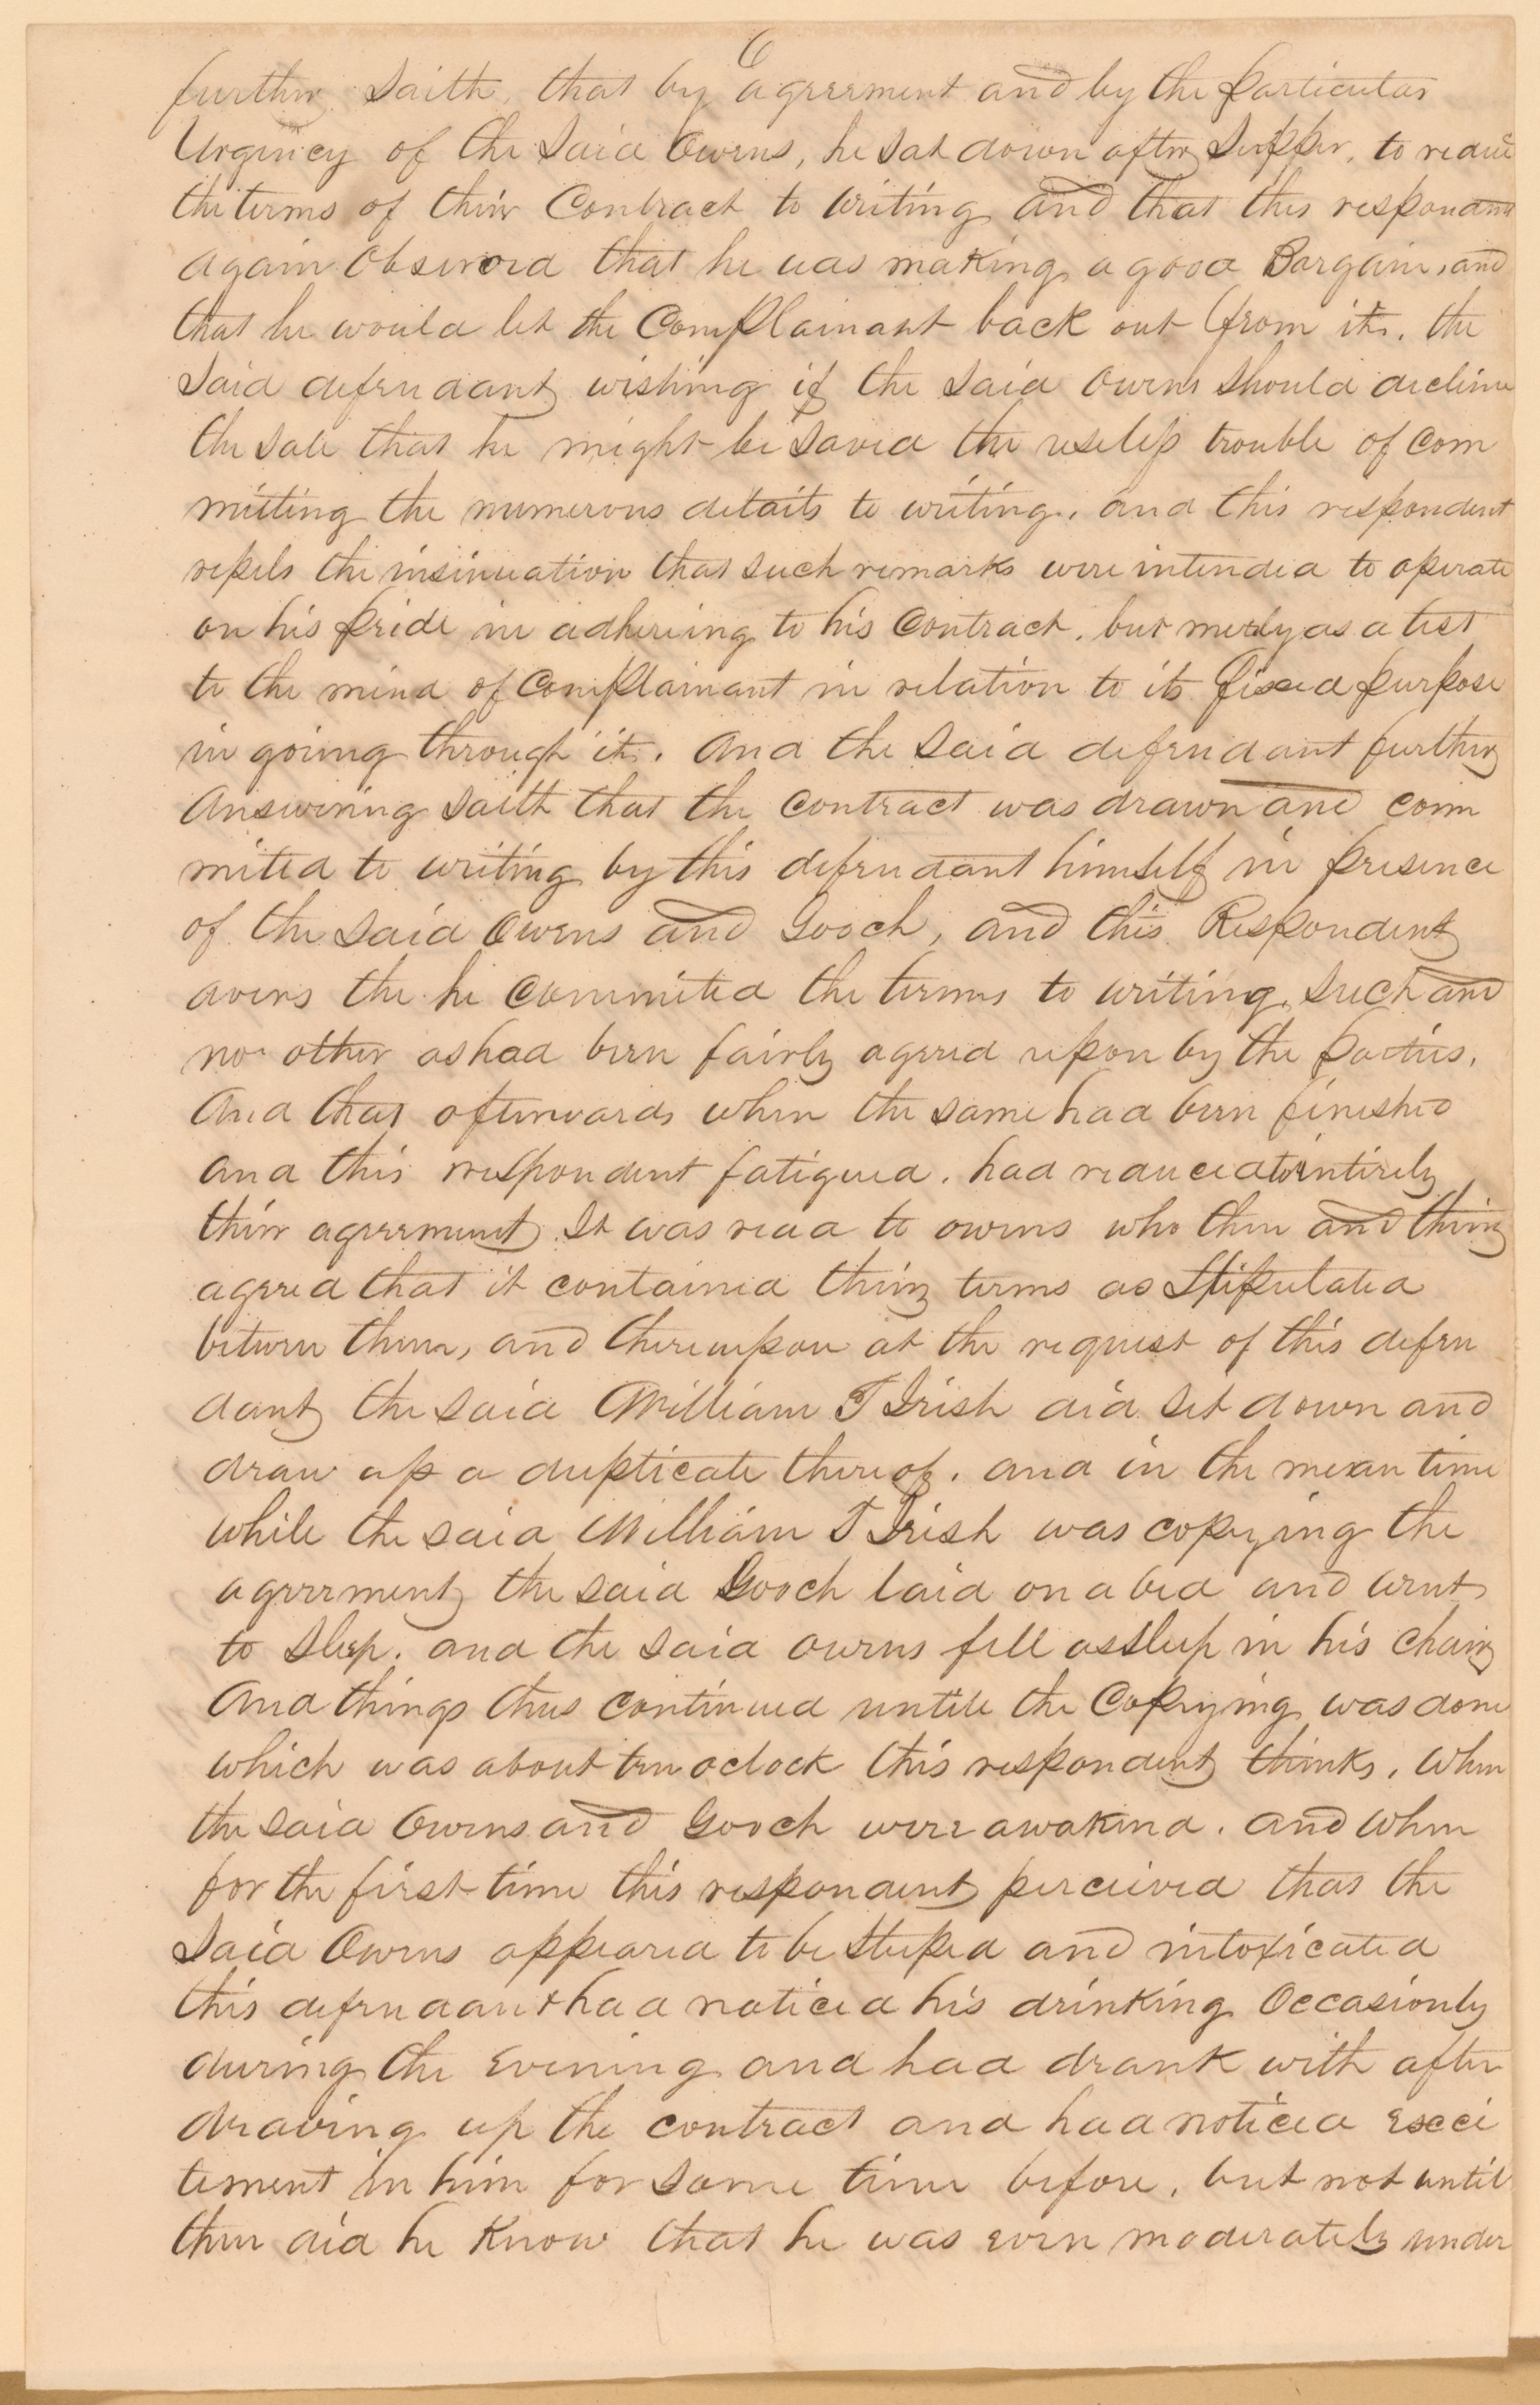 6
further saith, that by agreement and by the particular
Urgency of the said Owens, he sat down after Supper, to reduce
the terms of their Contract to writing and that this respondant
again Observed that he was making a good Bargain, and
that he would let the Complainant back out from it. the
said defendant wishing if the said Owens should decline
the sale that he might be saved the useless trouble of com
mitting the numerous details to writing, and this respondent
repels the insinuation that such remarks were intended to operate
on his pride in adhering to his Contract, but merly as a test
to the mind of Complainant in relation to its fixed purpose
in going through it. And the said defendant further
Answering saith that the contract was drawn and com
mited to writing by this defendant himself in presence
of the said Owens and Gooch, and this Respondent
avers the he Commited the terms to writing, such and
no other as had been fairly agreed upon by the parties,
And that afterwards when the same had been finished
and this respondent fatigued, had reduced to entirely
their agreement It was read to owens who then and there
agreed that it contained their terms as stipulated
between them, and thereupon at the request of this defen
dant the said William T Irish did set down and
draw up a duplicate thereof, and in the mean time
while the said William T Irish was copying the
agreement the said Gooch laid on a bed and went
to sleep, and the said owens fell assleep in his chair
And things thus continued untill the Copying was done
which was about ten oclock this respondent thinks, When
the said Owens and Gooch were awakend. and when
for the first time this respondent perceived that the
said Owens appeared to be stuped and intoxicated
this defendant had noticed his drinking Occasionly
during the Evening and had drank with after
drawing up the contract and had noticed Exci
tement in him for some time before, but not until
then did he Know that he was even moderately under